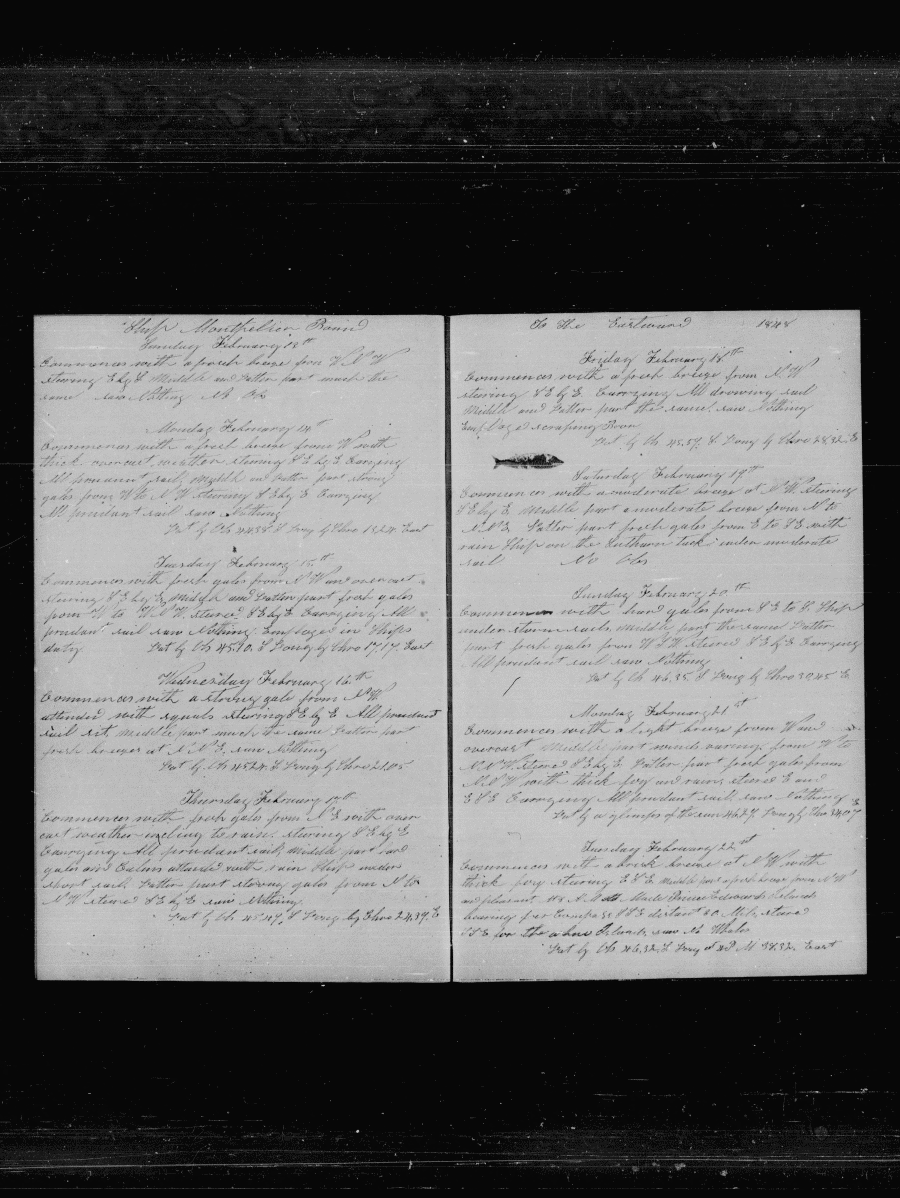 Ship Montpelier Bound
Sunday February 13th
Commences with a fresh breeze from W N W
stearing E by S Middle and Latter part much the
same saw Nothing No Obs
Monday February 14th
Commences with a fresh breeze from W with
thick overcast weather stearing S E by E Carrying
All prudant sail, Middle and Latter part strong
gales from W to N W stearing S E by E Carrying
All prudant sail saw Nothing
Lat by Obs 44.38 S Long by Chro 13.24 East
Tuesday February 15th
Commences with fresh gales from N W and overcast
stearing S E by E, Middle and Latter part fresh gales
from W to W N W, steared S E by E Carrying All
prudant sail saw Nothing Employed in Ships
duty Lat by Obs 45.10 S Long by Chro 17.17 East
Wednesday February 16th
Commences with a strong gale from N W
attended with squals stearing S E by E All prudant
sail set, Middle part much the same Latter part
fresh breezes at N N E, saw Nothing
Lat by Obs 45.24 S Long by Chro 21.05
Thursday February 17th
Commences with fresh gales from N E with over
cast weather inclining to rain, stearing S E by E
Carrying All prudant sail, Middle part hard
gales and Calms attended with rain Ship under
short sail, Latter part strong gales from N to
N W steared S E by E saw Nothing
Lat by Obs 45.47, S Long by Chro 24.39, E
To the Eastward 1848
Friday February 18th
Commences with a fresh breeze from N W
stearing S E by E, Carrying All drawing sail
Middle and Latter part the same, saw Nothing
Employed scraping Bone
Lat by Obs 45.57 S Long by Chro 28.32, E
Saturday February 19th
Commences with a moderate breeze at N W stearing
S E by E Middle part a moderate breeze from N to
N N E Latter part fresh gales from E to S E with
rain Ship on the Suthurn tack under moderate
sail No Obs
Sunday February 20th
Commences with hard gales from S E to S, Ship
under storm sails, Middle part the same Latter
part fresh gales from W S W steared S E by E Carrying
All prudant sail saw Nothing
Lat by Obs 46.35 S Long by Chro 30.45 E
Monday February 21st
Commences with a light breeze from W and
overcast Middle part winds varing from W to
N N W steared S E by E Latter part fresh gales from
N N W with thick fog and rain, steared E and
E S E Carrying All prudant sail saw Nothing
Lat by a glimpse of the sun 46.27 Long by Chro 34.07 E
Tuesday February 22nd
Commences with a brisk breeze at N W with
thick fog stearing E S E Middle part a fresh breeze from N W
and pleasant At 8 A M Princes Edwards Islands
bearing per Compass S S E distant 30 Mls, steared
S E for the above Islands, saw No Whales
Lat by Obs 46.32 S Long at 4 P M 38.32 East